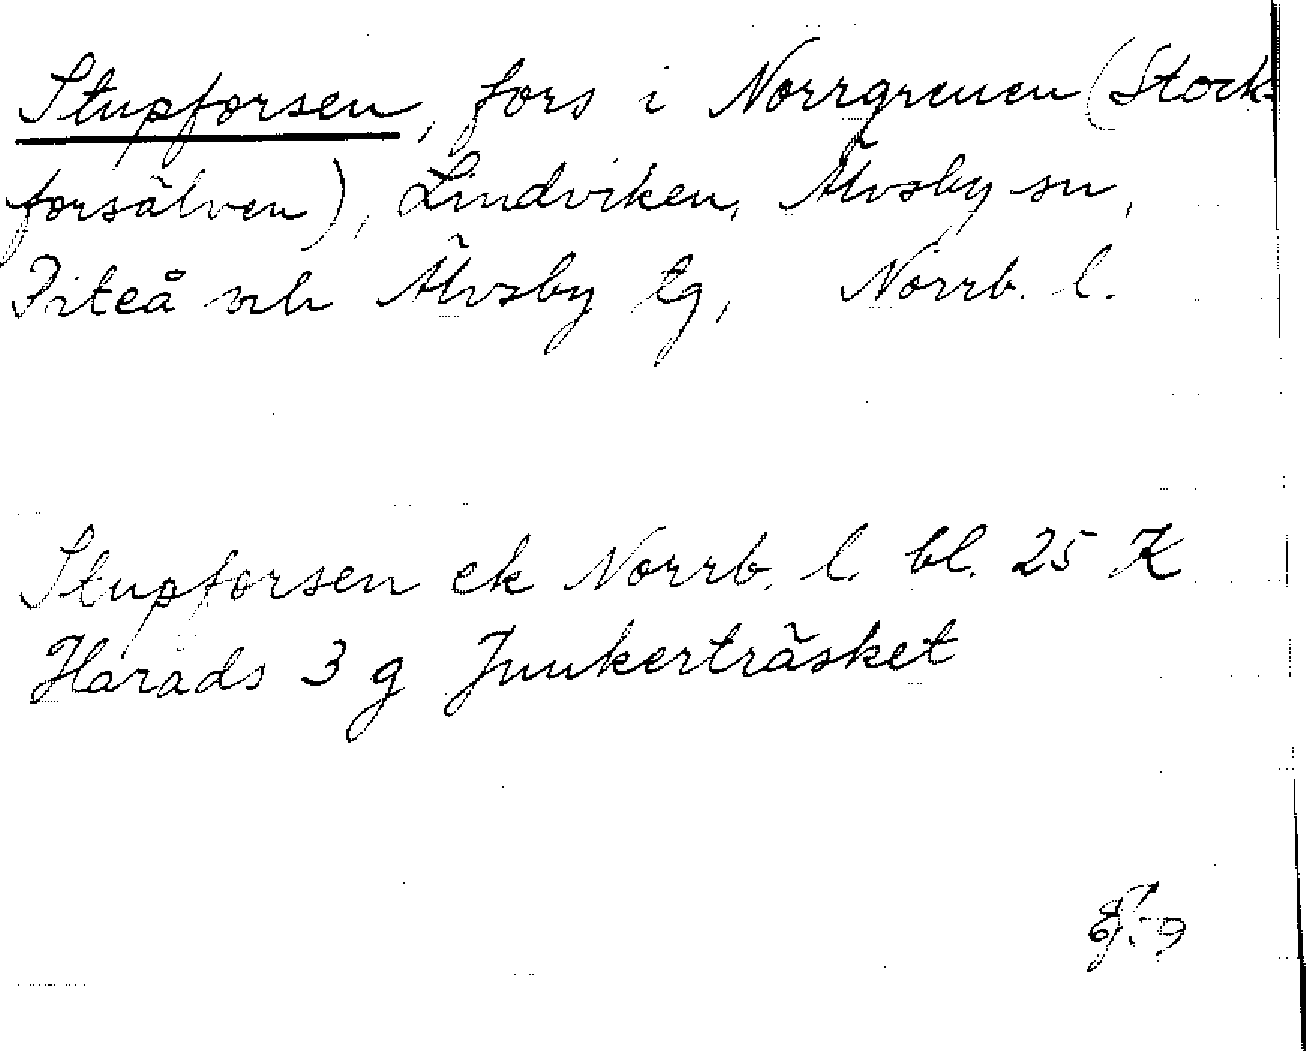 Stupforsen, fors i Norrgrenen (Stock-
forsälven), Lindviken, Älvsby sn,
Piteå och Älvsby tg, Norrb. l.
Stupforsen ek Norrb. l. bl. 25 K
Harads 3 g Junkerträsket